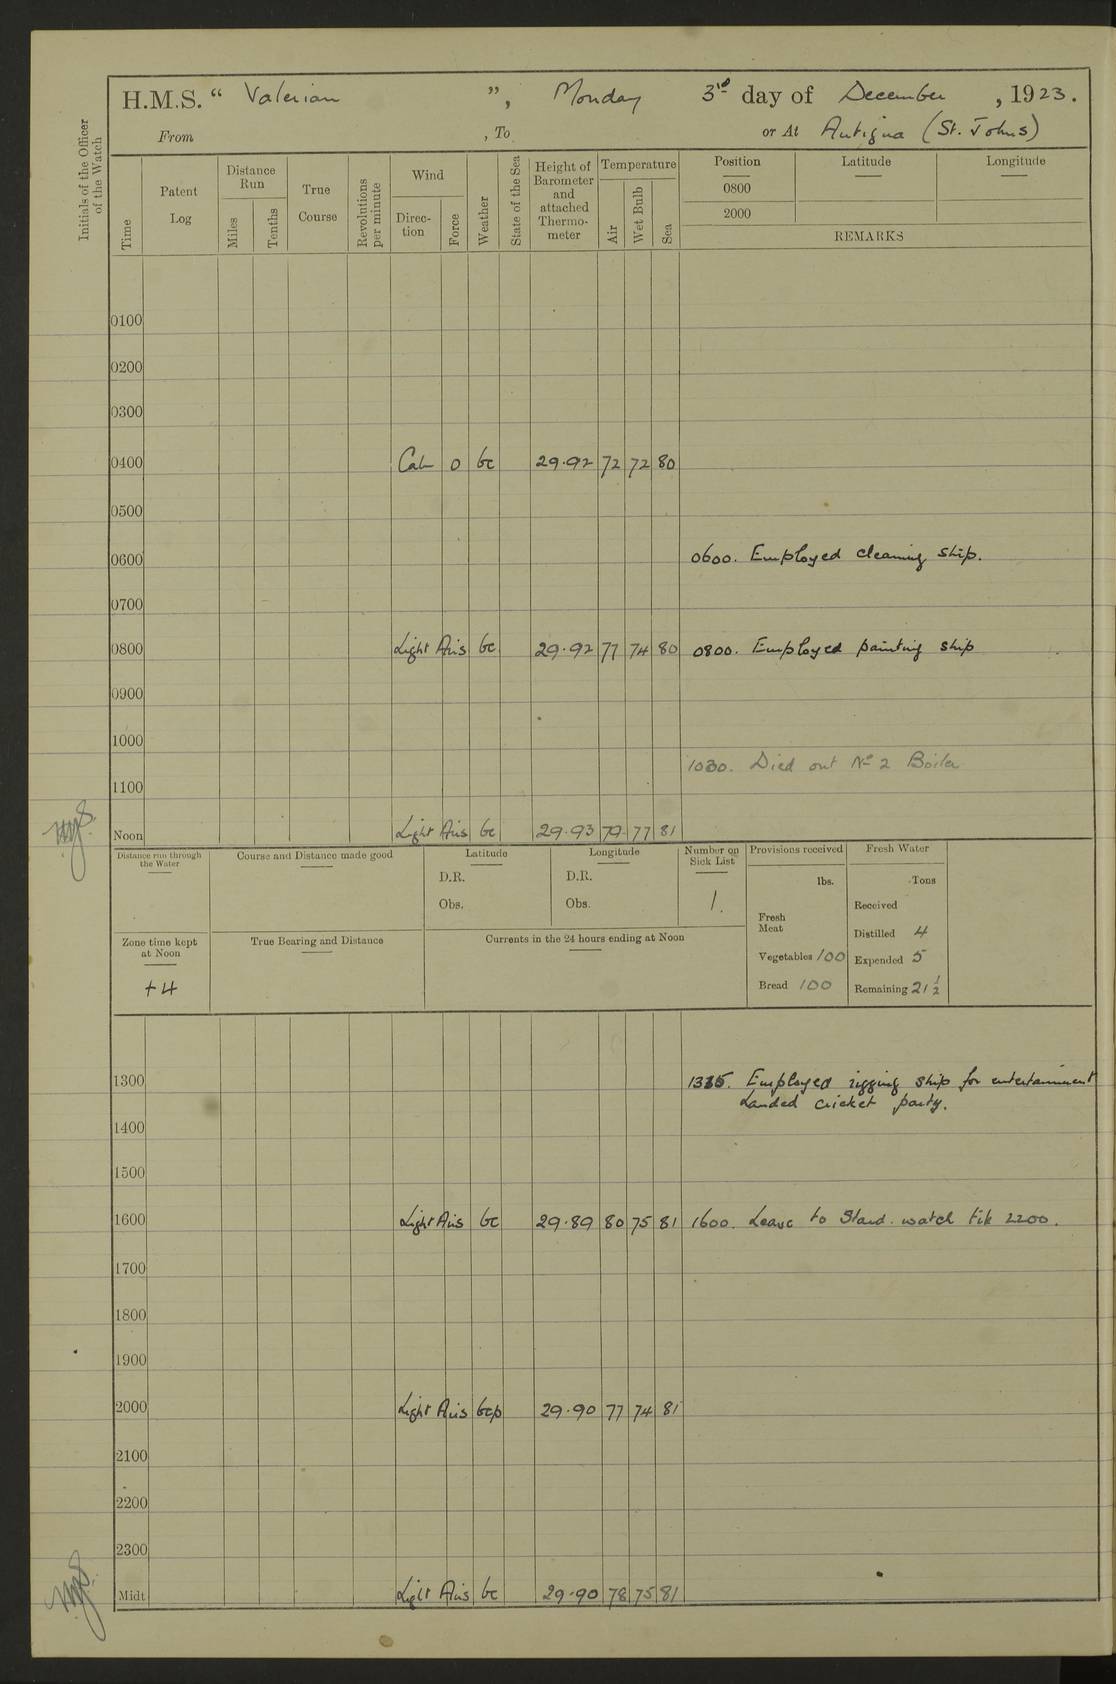 H.M.S. “ Valerian ”, Monday 3rd day of December , 1923.
From , To or At Antigua (St. Johns)
Initials of the Officer of the Watch
Time
Patent Log
Distance Run
Miles
Tenths
True Course
Revolutions per minute
Wind
Direction
Force
Weather
State of the Sea
Height of Barometer and attached Thermometer
Temperature
Air
Wet Bulb
Sea
Position Latitude Longitude
0800
2000
REMARKS
0100
0200
0300
0400 Calm 0 bc 29.92 72 72 80
0500
0600 0600. Employed cleaning ship.
0700
0800 Light Airs bc 29.92 77 74 80 0800. Employed painting ship
0900
1000
1030. Died out No 2 Boiler
1100
Noon Light Airs bc 29.93 79 77 81
Distance run through the Water
Course and Distance made good
Latitude
D.R.
Obs.
Longitude
D.R.
Obs.
Number on Sick List
1.
Provisions received
lbs.
Fresh Meat
Vegetables 100
Bread 100
Fresh Water
Tons
Received
Distilled 4
Expended 5
Remaining 21 1/2
Zone time kept at Noon
+4
True Bearing and Distance
Currents in the 24 hours ending at Noon
1300 Employed rigging ship for entertainment
Landed cricket party.
1400
1500
1600 Light Airs bc 29.89 80 75 81 1600. Leave to Stand. watch till 2200.
1700
1800
1900
2000 Light Airs bcp 29.90 77 74 81
2100
2200
2300
Midt Light Airs bc 29.90 78 75 81